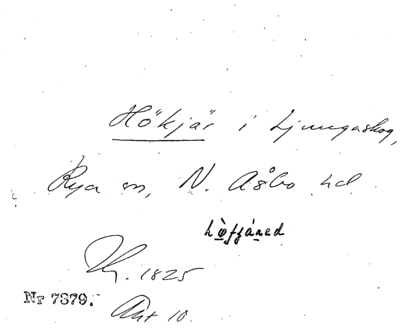 Hökjär i Ljungaskog,
Rya sn, N. Åsbo hd
1825
Nr 7679. Akt 10.